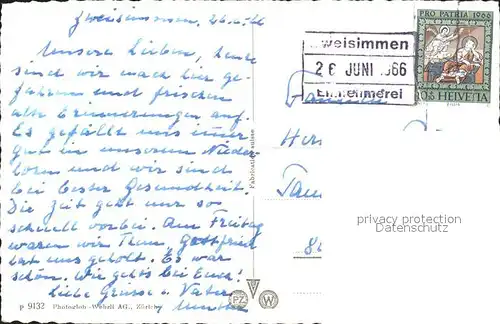 Zweisimmen, 26.6.66
Unsere Lieben, heute
sind wir nach hier ge-
fahren und frischen
alte Erinnerungen auf.
Es gefällt uns immer
gut in unserem Nieder-
horn und wir sind
bei bester Gesundheit.
Die Zeit geht uns so
schnell vorbei. Am Freitag
waren wir Thun, Gottfried
hat uns geholt. Es war
schön. Wie gehts bei Euch!
Liebe Grüsse v. Vater
Mutter
p 9132 Photoglob-Wehrli AG., Zürich
Fabrication suisse
PZ W
weisimmen
26 JUNI 1966
Einnehmerei
PRO PATRIA 1966
HELVETIA
Familie
Her
privacy protection
Watermark